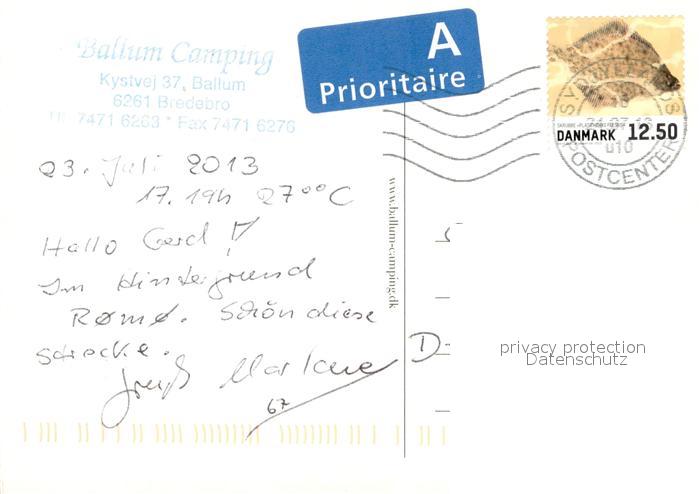 Ballum Camping
Kystvej 37, Ballum
6261 Bredebro
Tlf. 7471 6263 * Fax 7471 6276
A
Prioritaire
DANMARK 12.50
POSTCENTER
23. Juli 2013
17.19h 27°C
Hallo Gerd!
Im Hintergrund
Rømø. Schön diese
Gruß
67
D
www.ballum-camping.dk
privacy protection
Datenschutz